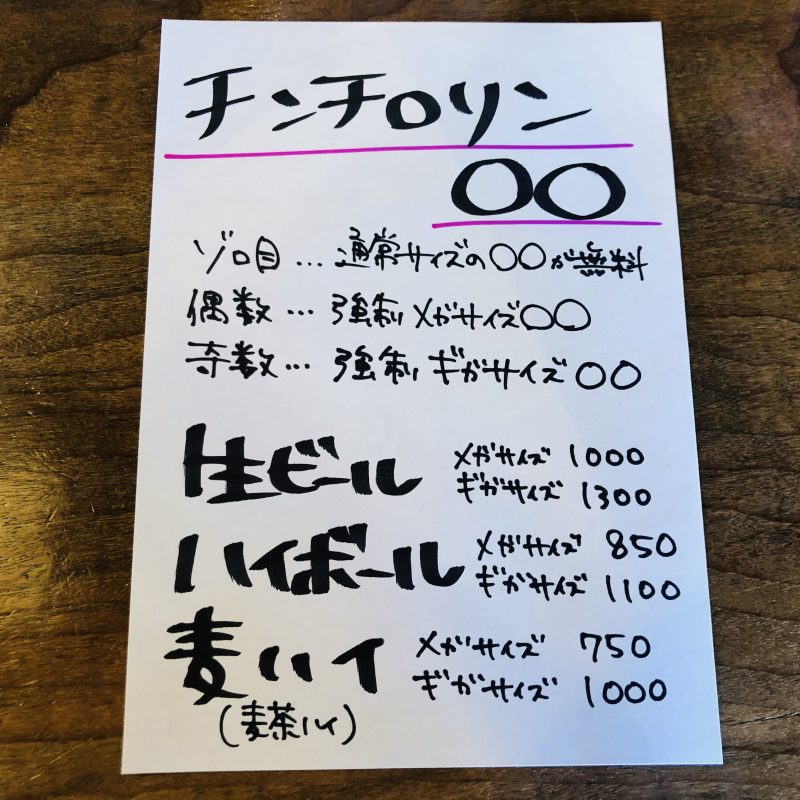 チンチロリン
〇〇
ゾロ目…通常サイズの〇〇が無料
偶数…強制メガサイズ〇〇
奇数…強制ギガサイズ〇〇
生ビール メガサイズ 1000
ギガサイズ 1300
ハイボール メガサイズ 850
ギガサイズ 1100
麦ハイ メガサイズ 750
ギガサイズ 1000
(麦茶ハイ)